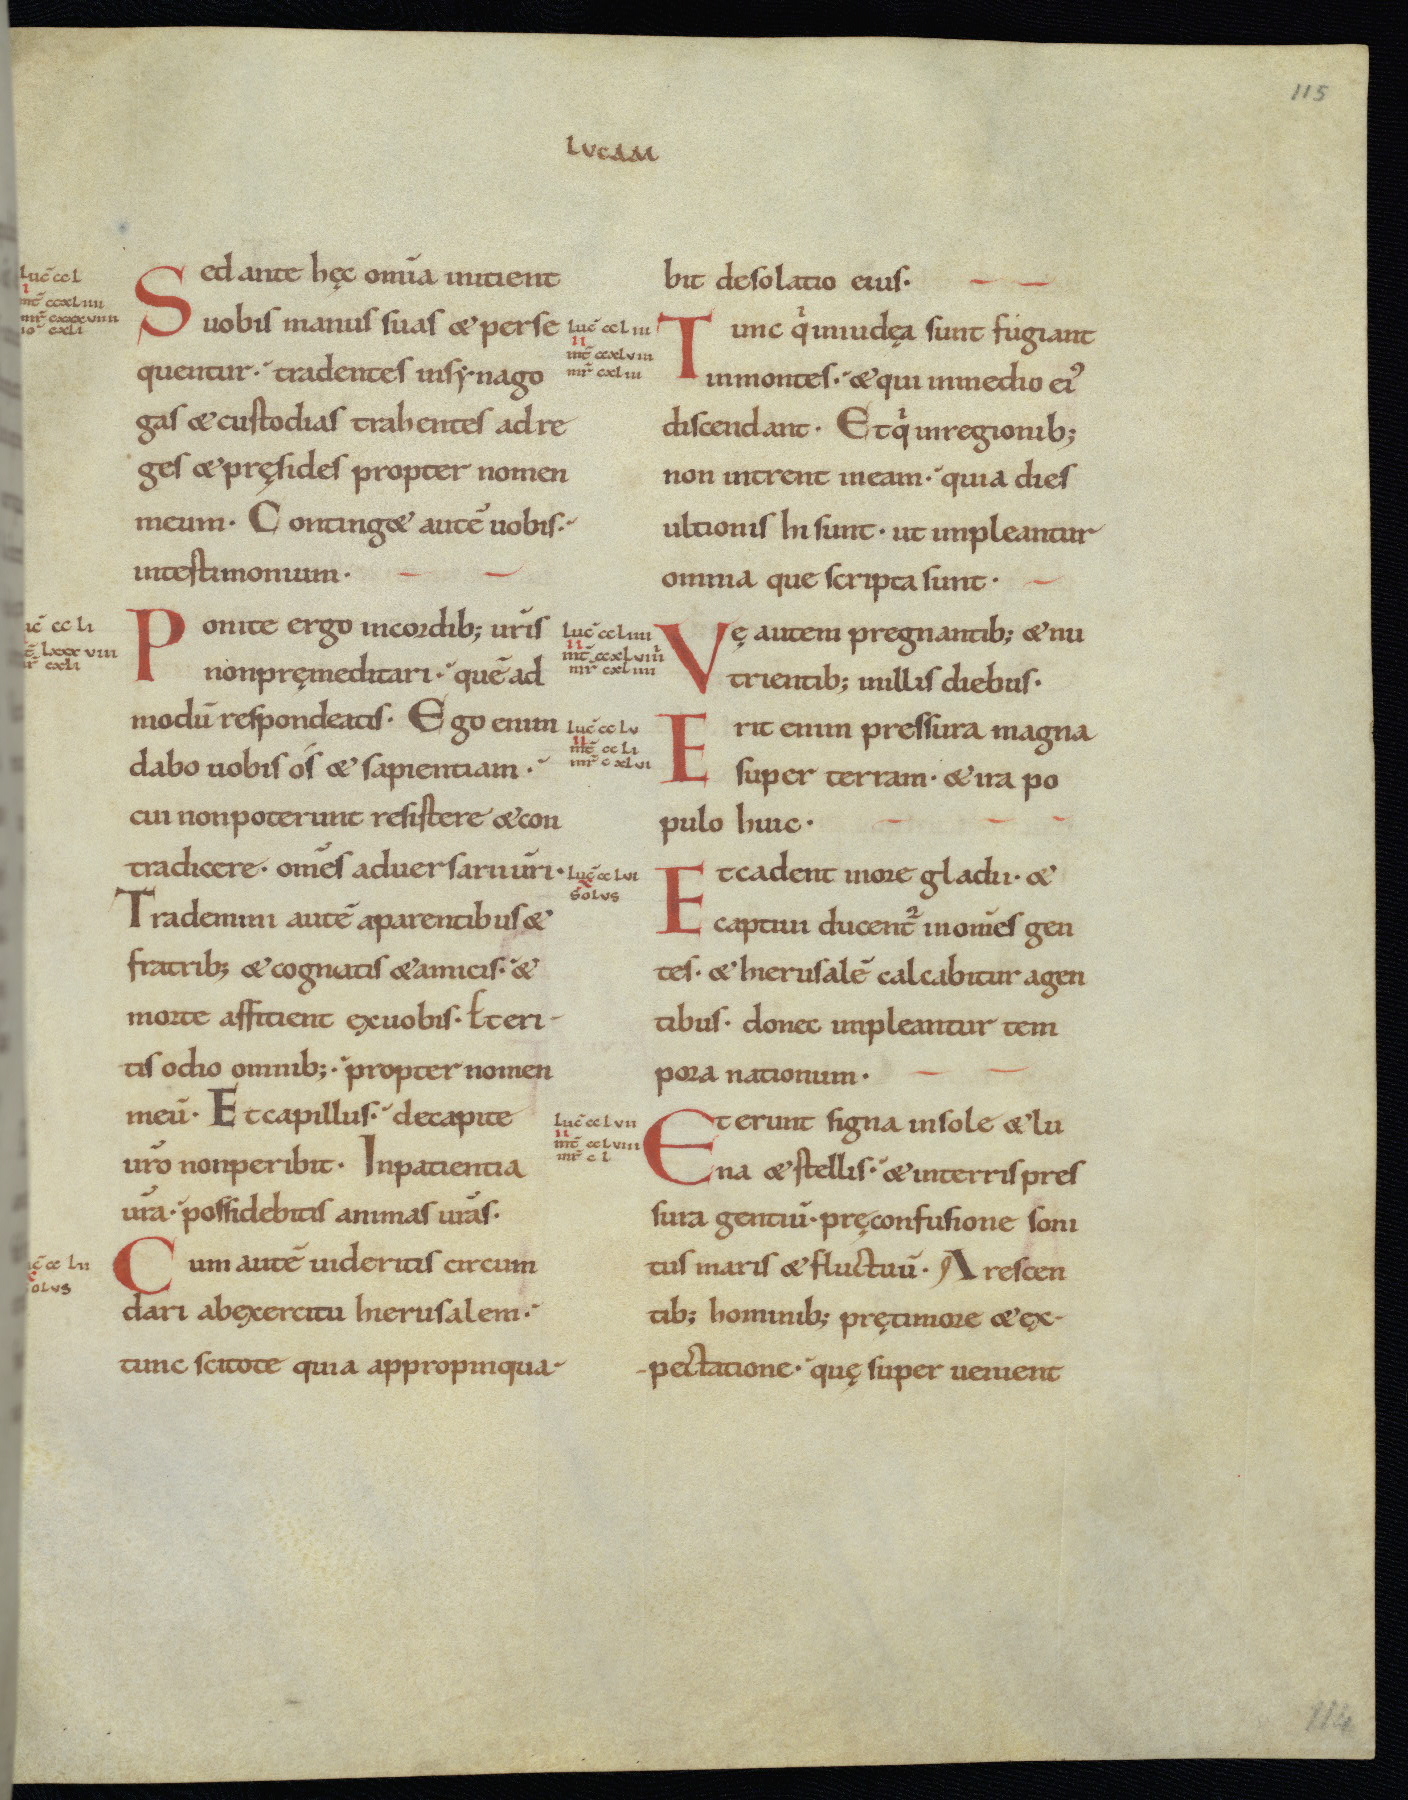 115
LVCAM
Luc̄ ccL
I
mt̄ ccxLIIII
mr̄ cxxxvIIII
io cxLI
Sed ante hęc om̄a initient
uobis manus suas & perse
quentur· tradentes insynago
gas & custodias trahentes ad re
ges & pręsides propter nomen
meum· Conting& autē uobis·
intestimonium·
cc LI
Lxxx vIII
cxLI
Ponite ergo incordib; ur̄is
nonpręmeditari· quē ad
modū respondeatis· Ego enim
dabo uobis ós & sapientiam·
cui nonpoterunt resistere & con
tradicere· om̄es aduersarii ur̄i·
Trademini autē aparentibus &
fratrib; & cognatis & amicis· &
morte afficient ex uobis· Et eri-
tis odio omnib;· propter nomen
meū· Et capillus· decapite
ur̄o nonperibit· Inpatientia
ur̄a· possidebitis animas ur̄as·
cc LII
oLvs
Cum autē uideritis circum
dari abexercitu hierusalem·
tunc scitote quia appropinqua-
bit desolatio eius·
Luc̄ ccLIII
II
mt̄ ccxLvIII
mr̄ cxLIII
Tunc qi iniudęa sunt fugiant
inmontes· & qui inmedio ei᾽
discendant· Et qi inregionib;
non intrent ineam· quia dies
ultionis hi sunt· ut impleantur
omnia que scripta sunt·
Luc̄ ccLIIII
II
mt̄ ccxLvIIII
mr̄ cxLIIII
Vę autem pregnantib; & nu
trientib; inillis diebus·
Luc̄ ccLv
II
mt̄ ccLI
mr̄ cxLvI
Erit enim pressura magna
super terram· & ira po
pulo huic·
Luc̄ ccLvI
x
soLvs
Et cadent in ore gladii· &
captiui ducent᷑ in om̄es gen
tes· & hierusalē calcabitur agen
tibus· donec impleantur tem
pora nationum·
Luc̄ ccLvII
II
mt̄ ccLvIII
mr̄ cL
Et erunt signa insole & lu
na & stellis· & interris pres
sura gentiū· pręconfusione soni
tus maris & fluctuū· Arescen
tib; hominib; prętimore & ex-
-pectatione· quę super uenient
114